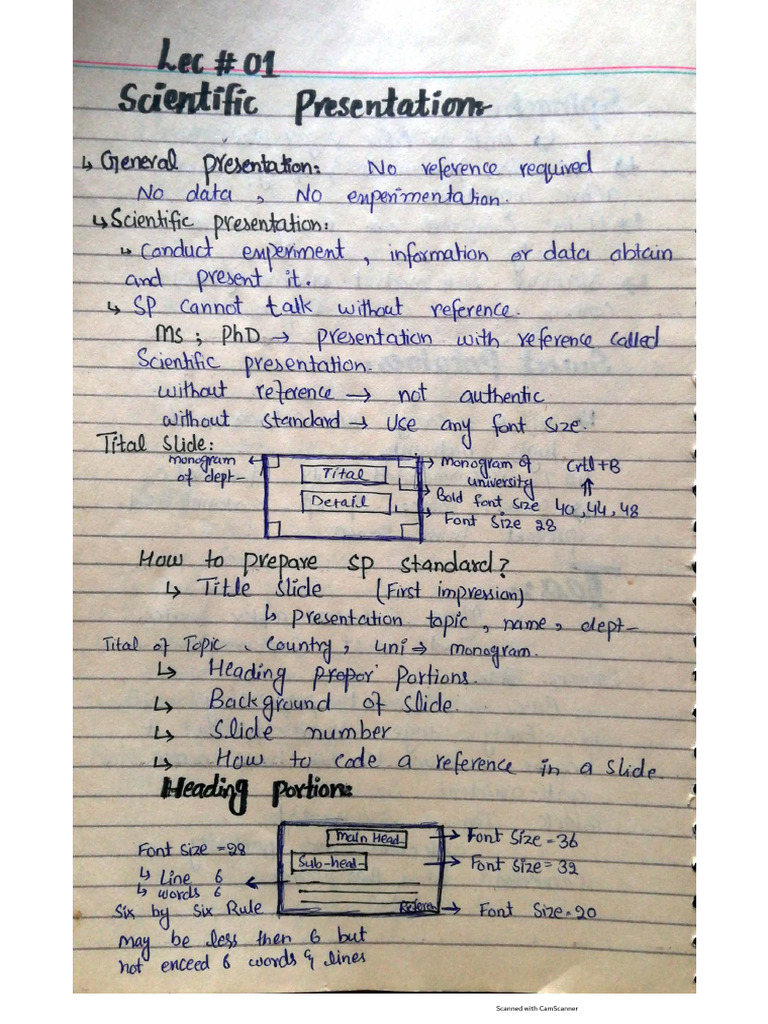 Lec # 01
Scientific Presentation
↳ General presentation: No reference required
No data, No experimentation.
↳ Scientific presentation:
↳ Conduct experiment, information or data obtain
and present it.
↳ SP cannot talk without reference.
MS ; PhD → presentation with reference called
Scientific presentation.
without reference → not authentic
without standard → Use any font size.
Tital slide:
monogram of dept-
Tital
Detail
Monogram of university
Crtl+B
Bold font size 40, 44, 48
Font Size 28
How to prepare SP standard?
↳ Title slide (First impression)
↳ presentation topic, name, dept-
Tital of Topic, Country, uni ⇒ monogram.
↳ Heading propor portions.
↳ Background of slide.
↳ Slide number
↳ How to code a reference in a slide.
Heading portion:
Main Head
Font Size = 36
Font Size = 28
Sub-head
Font Size = 32
↳ Line 6
↳ words 6
Six by Six Rule
Referen
Font Size = 20
may be less then 6 but
not enceed 6 words & lines
Scanned with CamScanner